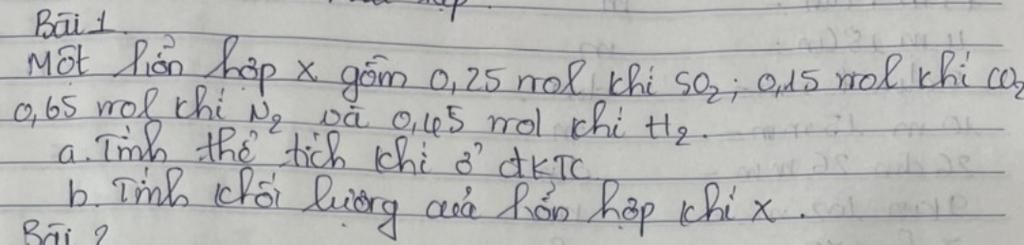 Bài 1
Một hỗn hợp X gồm 0,25 mol khí SO₂; 0,15 mol khí CO₂
0,65 mol khí N₂ và 0,45 mol khí H₂.
a. Tính thể tích khí ở đKTC
b. Tính khối lượng của hỗn hợp khí X.
Bài 2